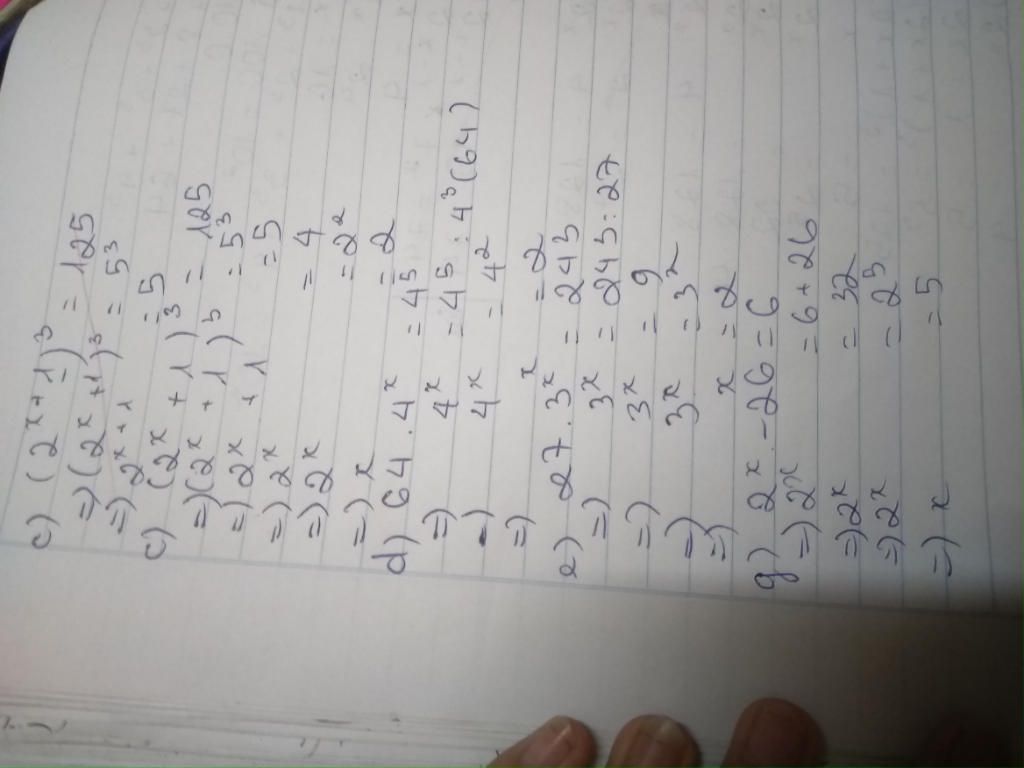 c) (2^x + 1)^3 = 125
=> (2^x + 1)^3 = 5^3
=> 2^x + 1 = 5
c) (2^x + 1)^3 = 125
=> (2^x + 1)^3 = 5^3
=> 2^x + 1 = 5
=> 2^x = 4
=> 2^x = 2^2
=> x = 2
d) 64 . 4^x = 4^5
=> 4^x = 4^5 : 4^3 (64)
=> 4^x = 4^2
=> x = 2
e) 27 . 3^x = 243
=> 3^x = 243 : 27
=> 3^x = 9
=> 3^x = 3^2
=> x = 2
g) 2^x - 26 = 6
=> 2^x = 6 + 26
=> 2^x = 32
=> 2^x = 2^5
=> x = 5